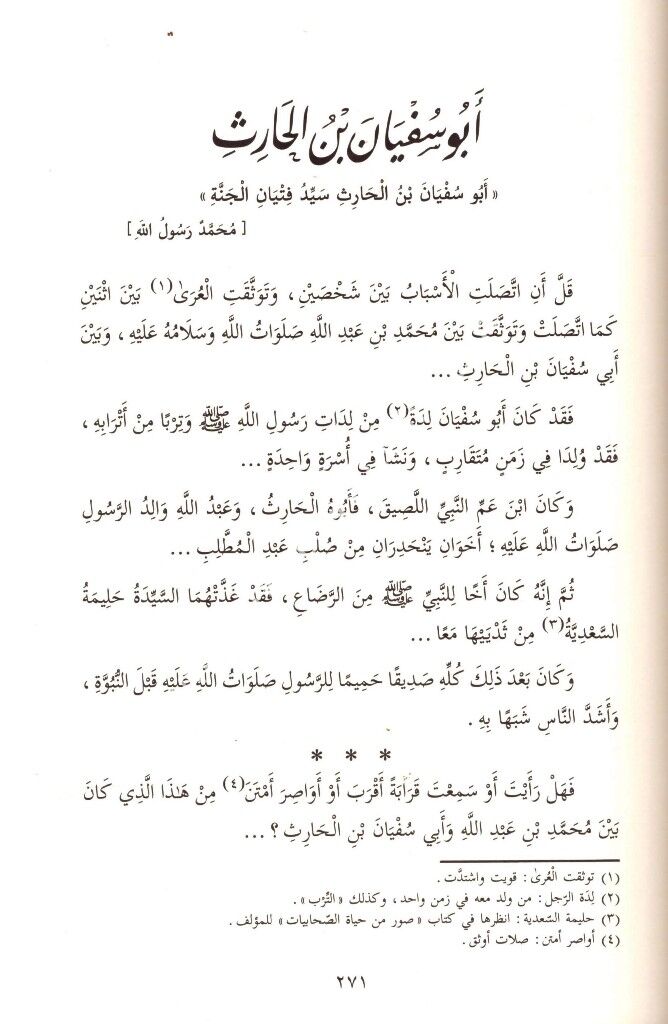 أَبُو سُفْيَانَ بْنُ الْحَارِثِ
« أَبُو سُفْيَانَ بْنُ الْحَارِثِ سَيِّدُ فِتْيَانِ الْجَنَّةِ »
[ مُحَمَّدٌ رَسُولُ اللَّهِ ]
قَلَّ أَنِ اتَّصَلَتِ الْأَسْبَابُ بَيْنَ شَخْصَيْنِ ، وَتَوَثَّقَتِ الْعُرَىٰ(١) بَيْنَ اثْنَيْنِ
كَمَا اتَّصَلَتْ وَتَوَثَّقَتْ بَيْنَ مُحَمَّدِ بْنِ عَبْدِ اللَّهِ صَلَوَاتُ اللَّهِ وَسَلَامُهُ عَلَيْهِ ، وَبَيْنَ
أَبِي سُفْيَانَ بْنِ الْحَارِثِ ...
فَقَدْ كَانَ أَبُو سُفْيَانَ لِدَةً(٢) مِنْ لِدَاتِ رَسُولِ اللَّهِ ﷺ وَتِرْبًا مِنْ أَتْرَابِهِ ،
فَقَدْ وُلِدَا فِي زَمَنٍ مُتَقَارِبٍ ، وَنَشَآ فِي أُسْرَةٍ وَاحِدَةٍ ...
وَكَانَ ابْنَ عَمِّ النَّبِيِّ اللَّصِيقَ ، فَأَبُوهُ الْحَارِثُ ، وَعَبْدُ اللَّهِ وَالِدُ الرَّسُولِ
صَلَوَاتُ اللَّهِ عَلَيْهِ ؛ أَخَوَانِ يَنْحَدِرَانِ مِنْ صُلْبِ عَبْدِ الْمُطَّلِبِ ...
ثُمَّ إِنَّهُ كَانَ أَخًا لِلنَّبِيِّ ﷺ مِنَ الرَّضَاعِ ، فَقَدْ غَذَّتْهُمَا السَّيِّدَةُ حَلِيمَةُ
السَّعْدِيَّةُ(٣) مِنْ ثَدْيَيْهَا مَعًا ...
وَكَانَ بَعْدَ ذَلِكَ كُلِّهِ صَدِيقًا حَمِيمًا لِلرَّسُولِ صَلَوَاتُ اللَّهِ عَلَيْهِ قَبْلَ النُّبُوَّةِ ،
وَأَشَدَّ النَّاسِ شَبَهًا بِهِ .
* * *
فَهَلْ رَأَيْتَ أَوْ سَمِعْتَ قَرَابَةً أَقْرَبَ أَوْ أَوَاصِرَ أَمْتَنَ(٤) مِنْ هَـٰذَا الَّذِي كَانَ
بَيْنَ مُحَمَّدِ بْنِ عَبْدِ اللَّهِ وَأَبِي سُفْيَانَ بْنِ الْحَارِثِ ؟ ...
(١) توثقت الْعُرىٰ : قويت واشتدَّت .
(٢) لِدَة الرَّجل : من ولد معه في زمن واحد ، وكذلك « التِّرْب » .
(٣) حليمة السعدية : انظرها في كتاب « صور من حياة الصَّحابيات » للمؤلف .
(٤) أواصر أمتن : صلات أوثق .
٢٧١